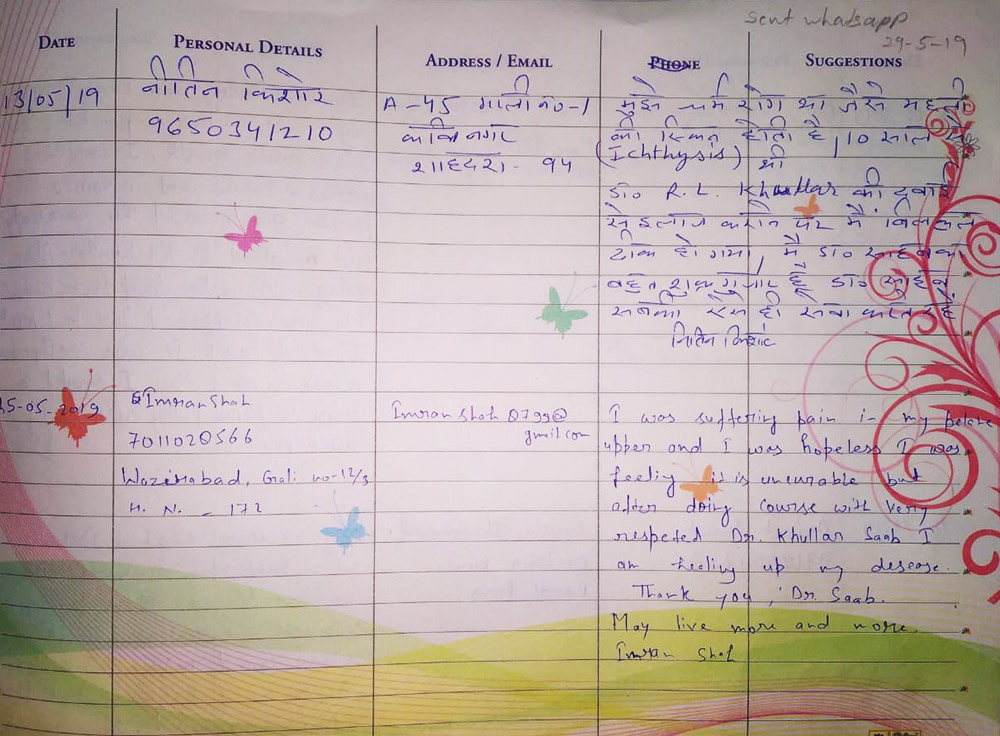 sent whatsapp
29-5-19
DATE
PERSONAL DETAILS
ADDRESS / EMAIL
PHONE
SUGGESTIONS
13/05/19
नीतिन किशोर
9650341210
A-45 गली नं०-1
कान्ति नगर
शाहदरा - 94
मुझे चर्म रोग था जैसे मछली
की स्किन होती है, 10 साल से
(Ichthysis) थी
डा० R.L. Khullar की दवाई
से इलाज करने पर मैं बिलकुल
ठीक हो गया, मैं डा० साहब का
बहुत शुक्रगुजार हूँ डा० साहब
सबकी ऐसे ही सेवा करते रहें
नितिन किशोर
25-05-2019
Imran Shah
7011020566
Wazirabad, Gali no-12/3
H. N. - 172
Imranshah0799@
gmail.com
I was suffering pain in my
upper and I was hopeless I was
feeling it is uncurable but
after doing course with very
respeted Dr. Khullar Saab I
am heeling up my desease.
Thank you, Dr. Saab.
May live more and more.
Imran Shah